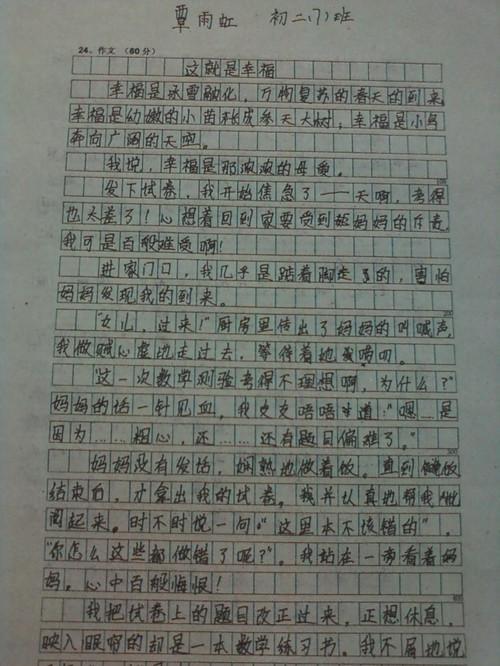 覃雨虹 初二(7)班
24、作文 (60分)
这就是幸福
幸福是冰雪融化，万物复苏的春天的到来，
幸福是幼嫩的小苗长成参天大树；幸福是小鸟
奔向广阔的天空。
我说，幸福是那浓浓的母爱。
100
发下试卷，我开始焦急了——天啊，考得
也太差了！心想着回到家要受到妈妈的斥责，
我可是百般难受啊！
进家门口，我几乎是踮着脚走了的，害怕
妈妈发现我的到来。
200
“女儿，过来！”厨房里传出了妈妈的叫喊声，
我做贼心虚地走过去，等待着她 唠叨。
“这一次数学测验考得不理想啊，为什么？”
妈妈的话一针见血，我支支唔唔地道：“嗯……是
因为……粗心，还……还有题目偏难了。”
300
妈妈没有发话，娴熟地做着饭。直到 饭
结束后，才拿出我的试卷。 认真地帮我
起来。时不时说一句：“这里本不该错的”，
“你怎么这些都做错了呢？”。我站在一旁看着妈
妈。心中百般悔恨！
400
我把试卷上的题目改正过来，正想休息，
映入眼帘的却是一本数学练习书。我不屑地说